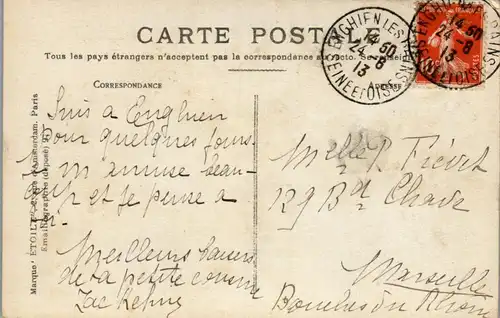 CARTE POSTALE
Tous les pays étrangers n'acceptent pas la correspondance au recto. Se renseigner
CORRESPONDANCE
ADRESSE
ENGHIEN LES BAINS
14 50
24 - 8
13
SEINE ET OISE
Suis à Enghien
pour quelques jours
m'amuse beau-
et je pense à
Meilleurs baisers
de la petite
Melle Fiévet
129 Bd Chave
Marseille
Bouches du Rhône
Marque ÉTOILE
Paris